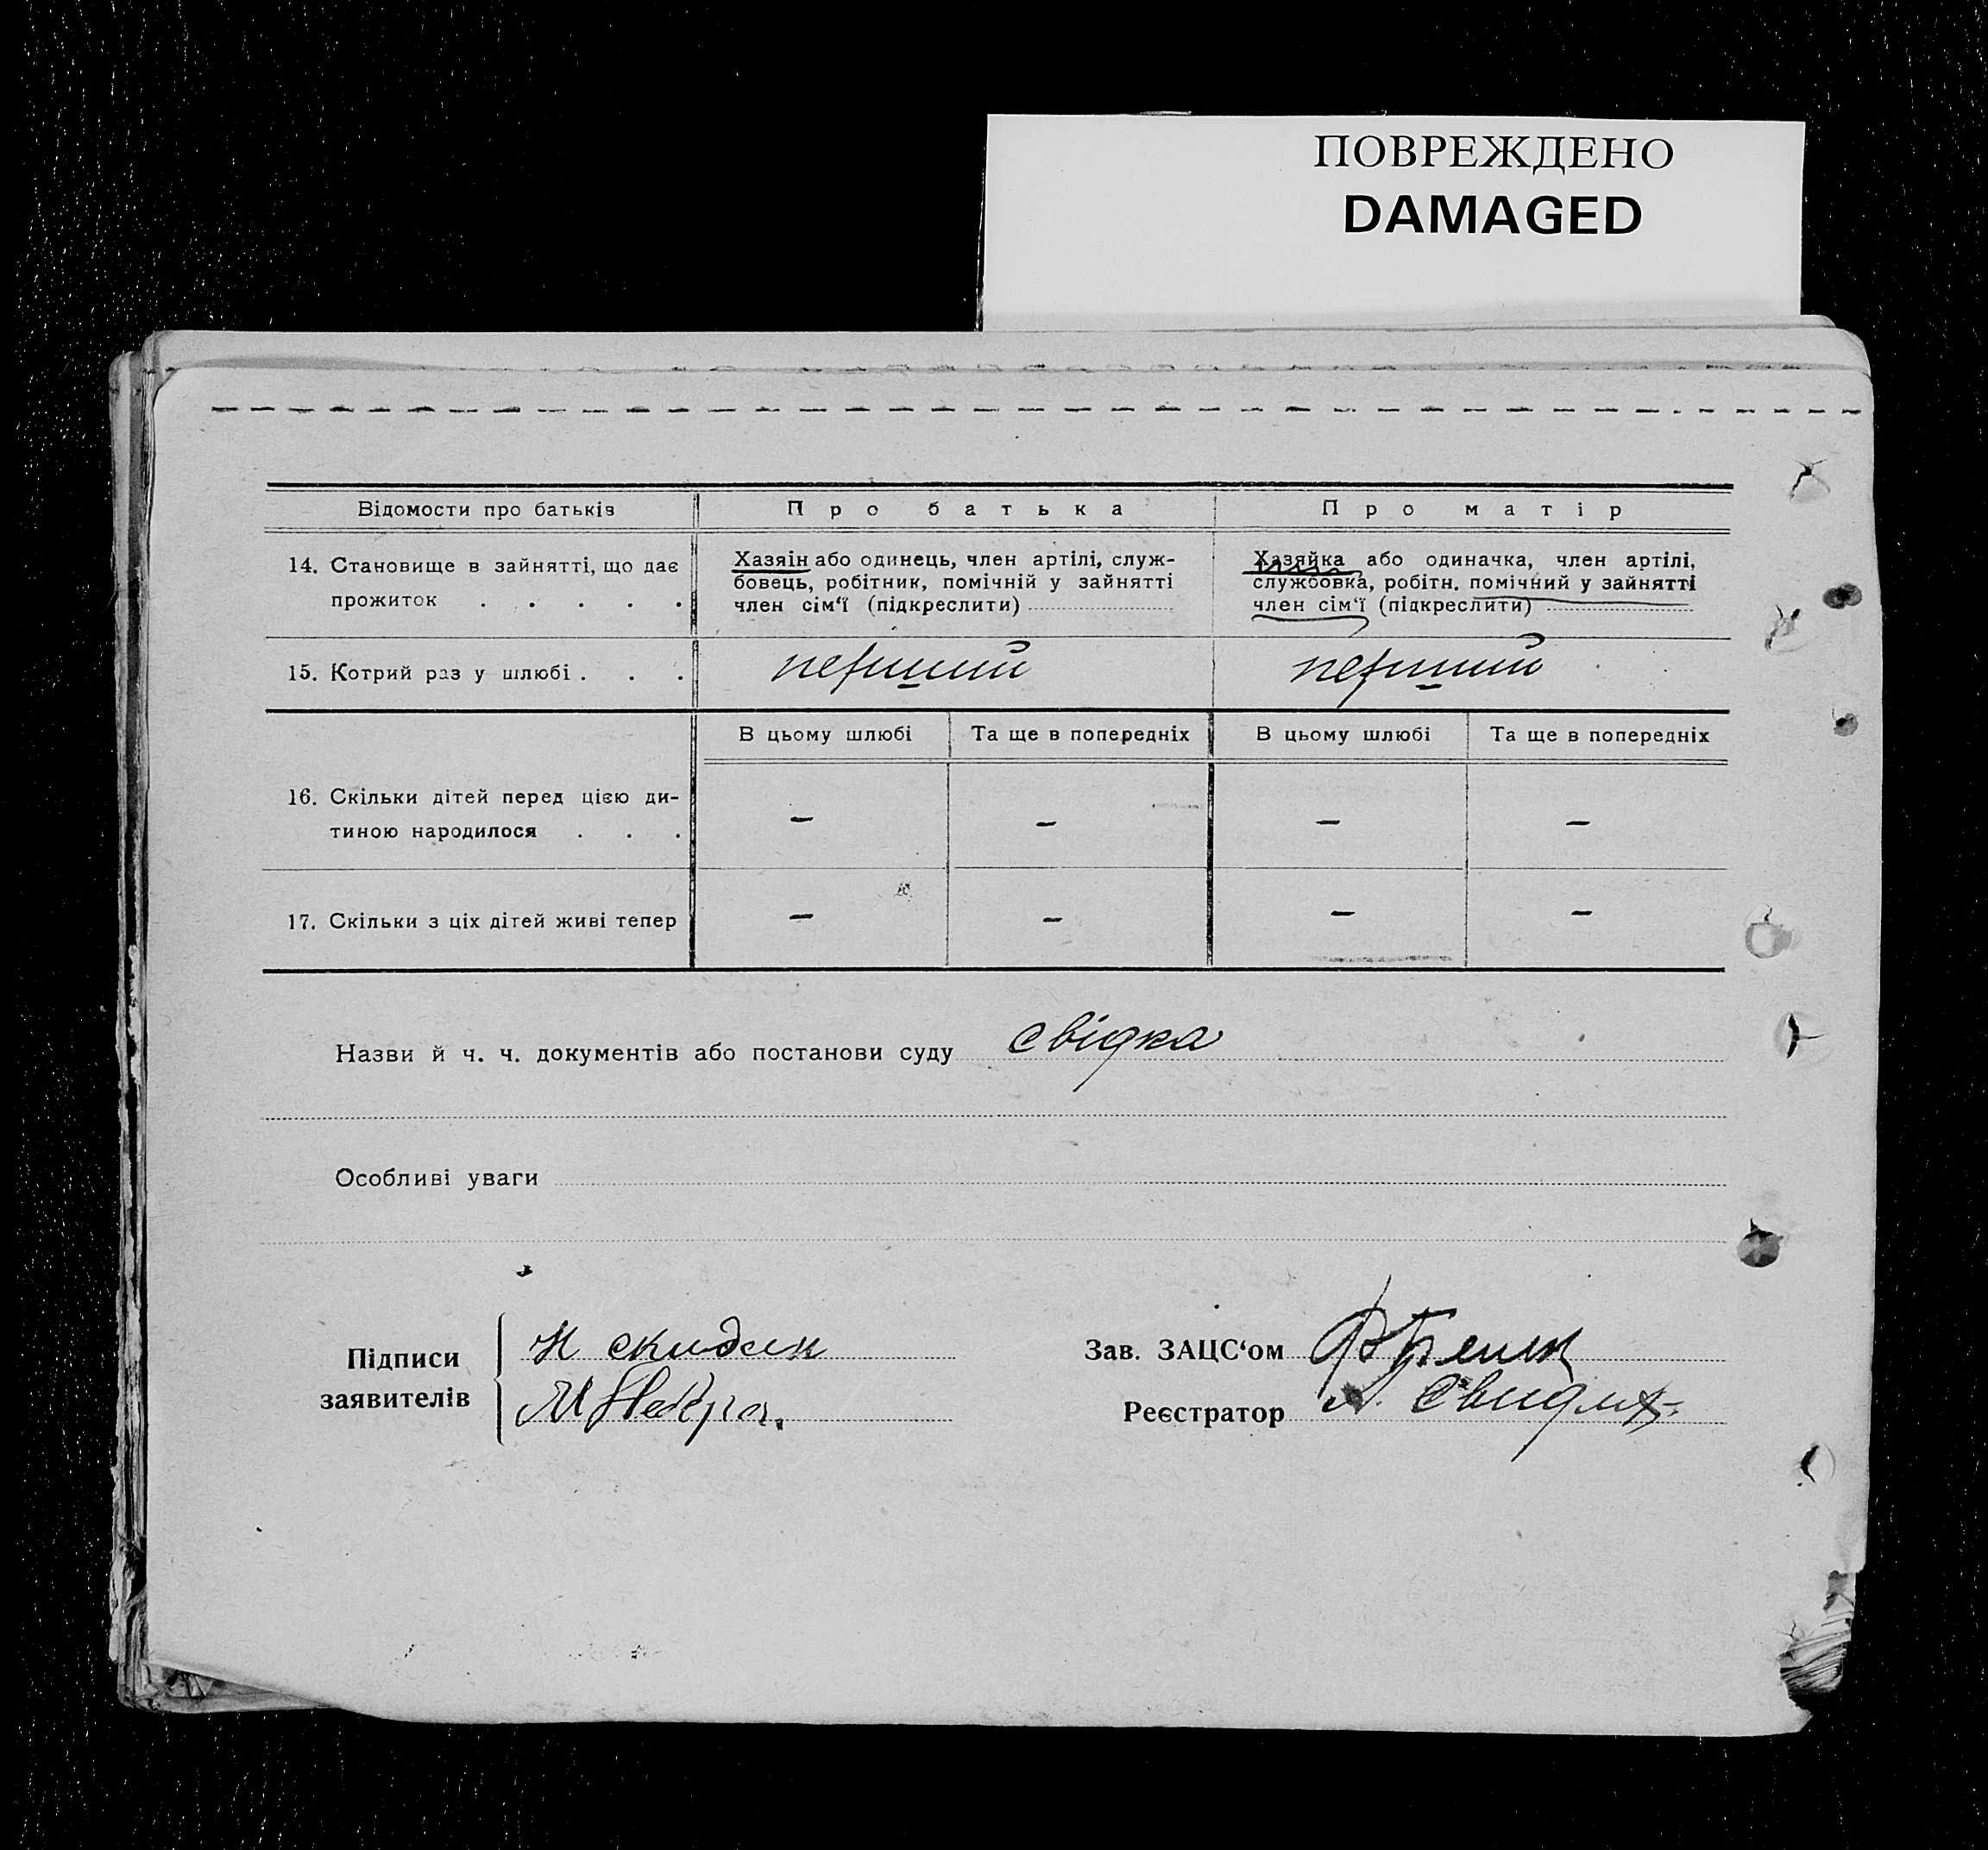 ПОВРЕЖДЕНО
DAMAGED
Відомости про батьків
Про батька
Про матір
14. Становище в зайнятті, що дає
прожиток . . . . .
Хазяін або одинець, член артілі, служ-
бовець, робітник, помічній у зайнятті
член сім‘ї (підкреслити)
Хазяйка або одиначка, член артілі,
службовка, робітн. помічний у зайнятті
член сім‘ї (підкреслити)
15. Котрий раз у шлюбі . . .
перший
перший
В цьому шлюбі
Та ще в попередніх
В цьому шлюбі
Та ще в попередніх
16. Скільки дітей перед цією ди-
тиною народилося . . .
– – – –
17. Скільки з ціх дітей живі тепер
– – – –
Назви й ч. ч. документів або постанови суду свідка
Особливі уваги
Підписи
заявителів
Н скидан
М
Зав. ЗАЦС‘ом
Реєстратор